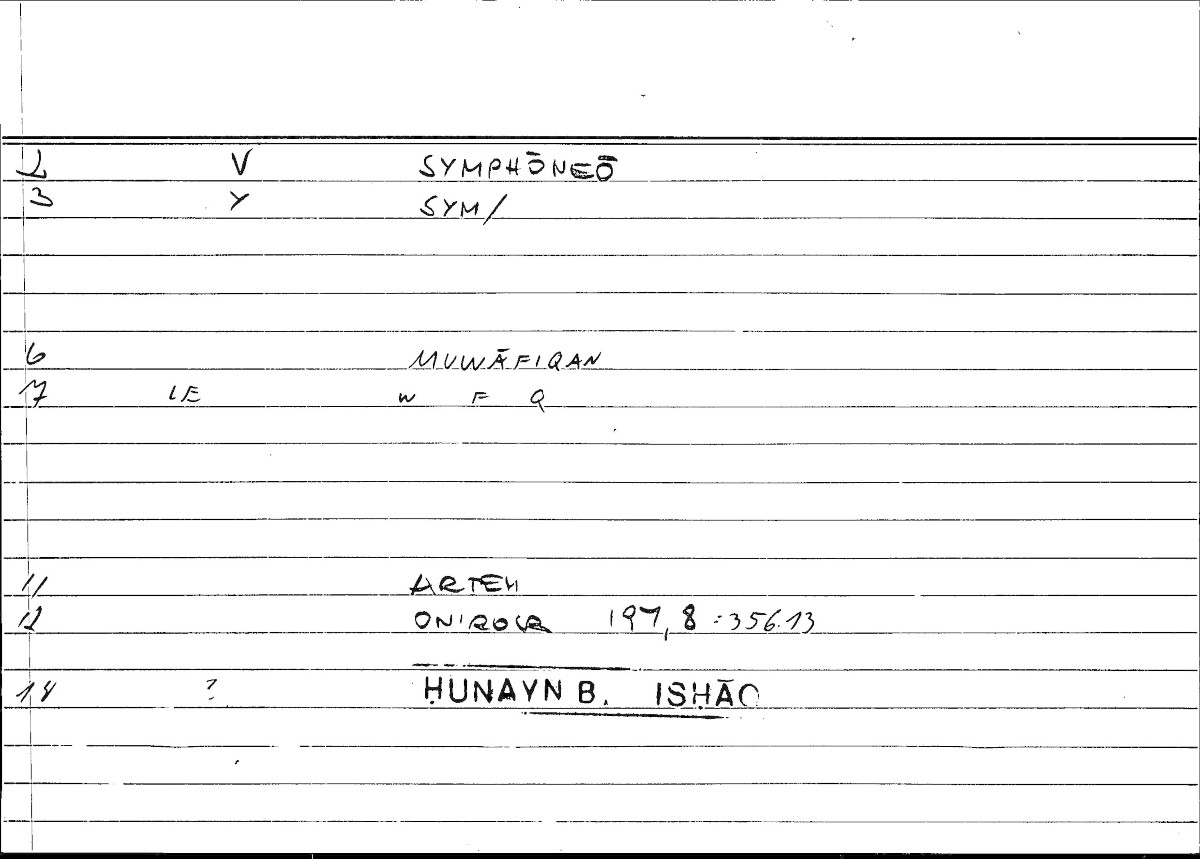 2 V SYMPHŌNEŌ
3 Y SYM/
6 MUWĀFIQAN
7 LE W F Q
11 ARTEM
12 ONIROCR 197,8:356.13
14 ? ḤUNAYN B. ISḤĀQ